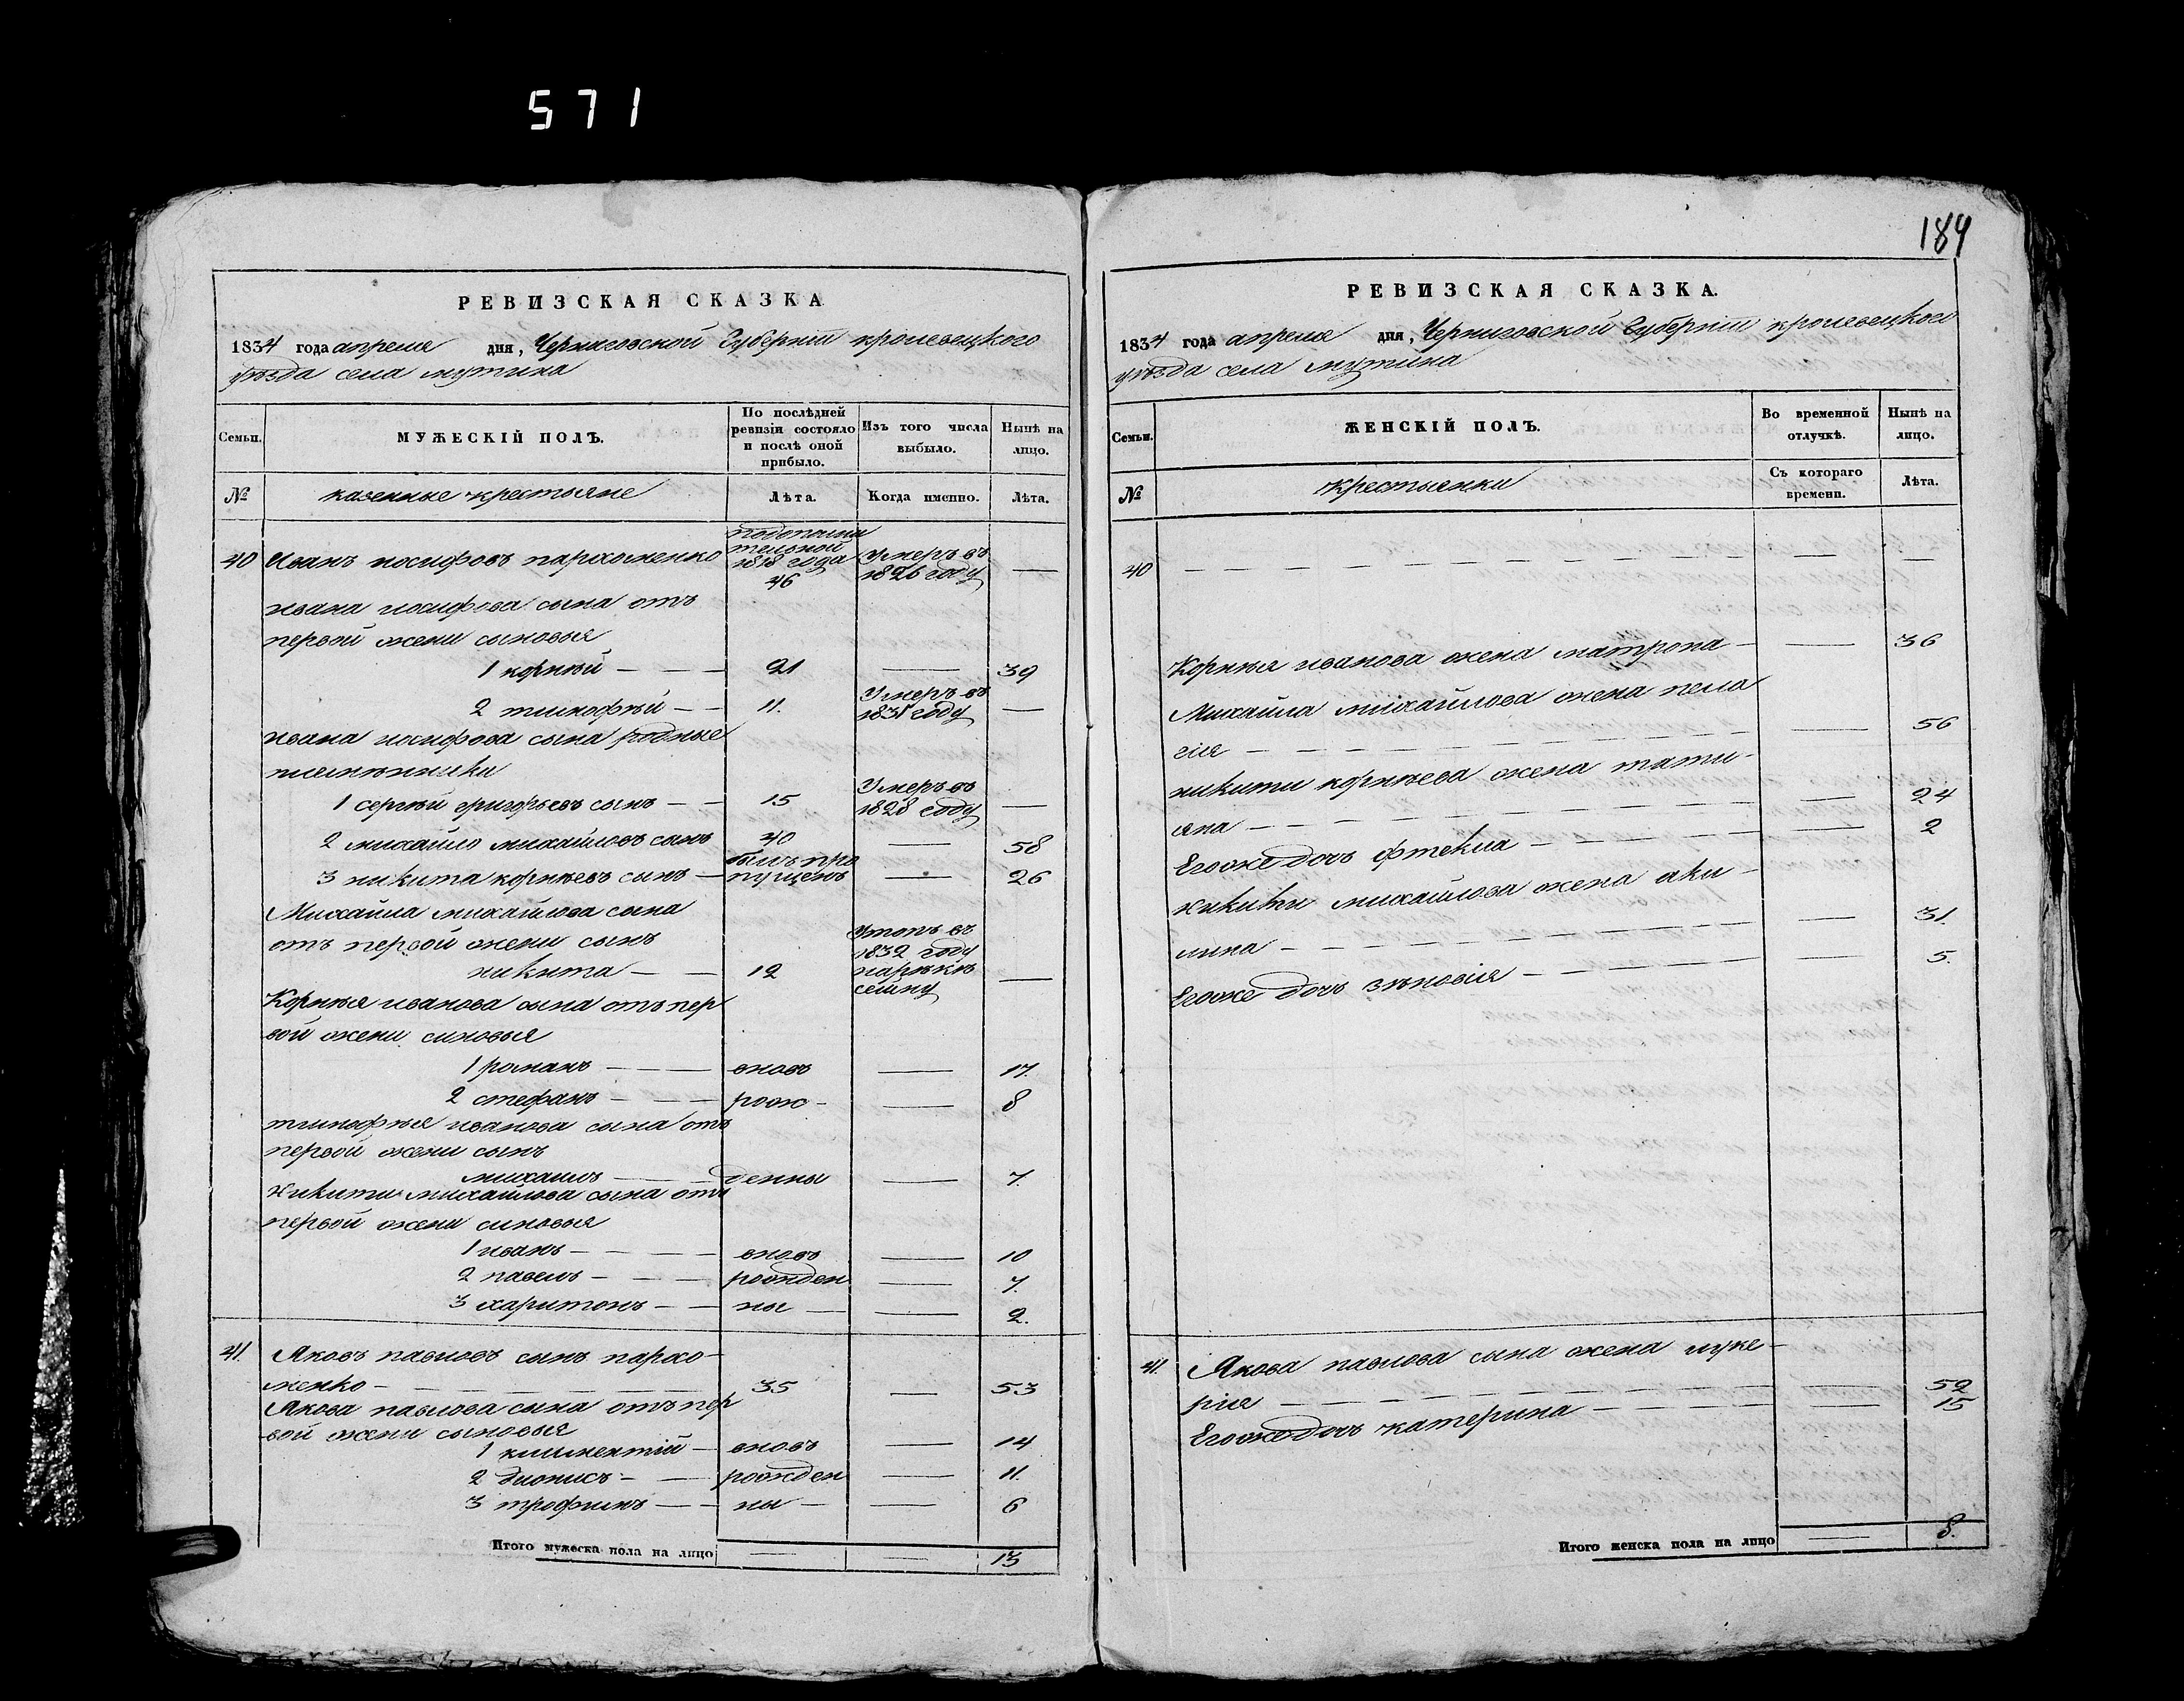 571
184
РЕВИЗСКАЯ СКАЗКА
1834 года апреля дня, Черниговской Губернїи кролевецкого
уѣзда села мутина
Семьи.
МУЖЕСКІЙ ПОЛЪ.
По послѣдней ревизіи состояло и послѣ оной прибыло.
Изъ того числа выбыло.
Нынѣ на лицо.
№
казенные крестьяне
Лѣта.
Когда именно.
Лѣта.
40 Иванъ иосифовъ пархоменко 1818 года 46 Умеръ въ 1826 году —
ивана иосифова сына отъ
первой жени сыновья
1 корнѣй — — 21 — 39
2 тимофѣй — — 11. Умеръ въ 1831 году —
ивана иосифова сына родные
племѣнники
1 сергѣй григорьевъ сынъ — — 15 Умеръ въ 1828 году —
2 михайло михайловъ сынъ 40 — 58
3 никита корнѣевъ сынъ — былъ пропущенъ — 26
Михайла михайлова сына
отъ первой жени сынъ
никита — — 12 Утопъ въ 1832 году нарѣкѣ сейму —
Корнѣя иванова сына отъ пер
вой жени синовья
1 романъ — — вновь — 17.
2 стефанъ — — рож- — 8
тимофѣя иванова сына отъ
первой жени сынъ
михаилъ — — денны — 7.
Никити михайлова сына отъ
первой жени синовья
1 иванъ — — — вновь — 10
2 павелъ — — — рожден — 7.
3 харитонъ — — ны — — 2.
41. Яковъ павловъ сынъ пархо-
менко — 35 — 53
Якова павлова сына отъ пер
вой жени сыновья
1 климентїй — вновь — 14
2 дионисъ — — рожден — 11.
3 трофимъ — — ны — — 6
Итого мужеска пола на лицо — — 13
РЕВИЗСКАЯ СКАЗКА.
1834 года апреля дня, Черниговской Губернїи кролевецкого
уѣзда села мутина
Семьи.
ЖЕНСКІЙ ПОЛЪ.
Во временной отлучкѣ.
Нынѣ на лицо.
№
крестьянки
Съ котораго времени.
Лѣта.
40 — — — — — — — — —
Корнѣя иванова жена матрона — — 36
Михайла михайлова жена пела
гия — — — — — — — 56
никити корнѣева жена тати-
яна — — — — — — — 24
Егоже дочь фтекла — — — — 2
никити михайлова жена аки-
лина — — — — — — — 31.
Егоже дочь зѣновїя — — — — 5.
41. Якова павлова сына жена луке-
рия — — — — — — — 52
Егоже дочь катерина — — — — 15
Итого женска пола на лицо — 8.